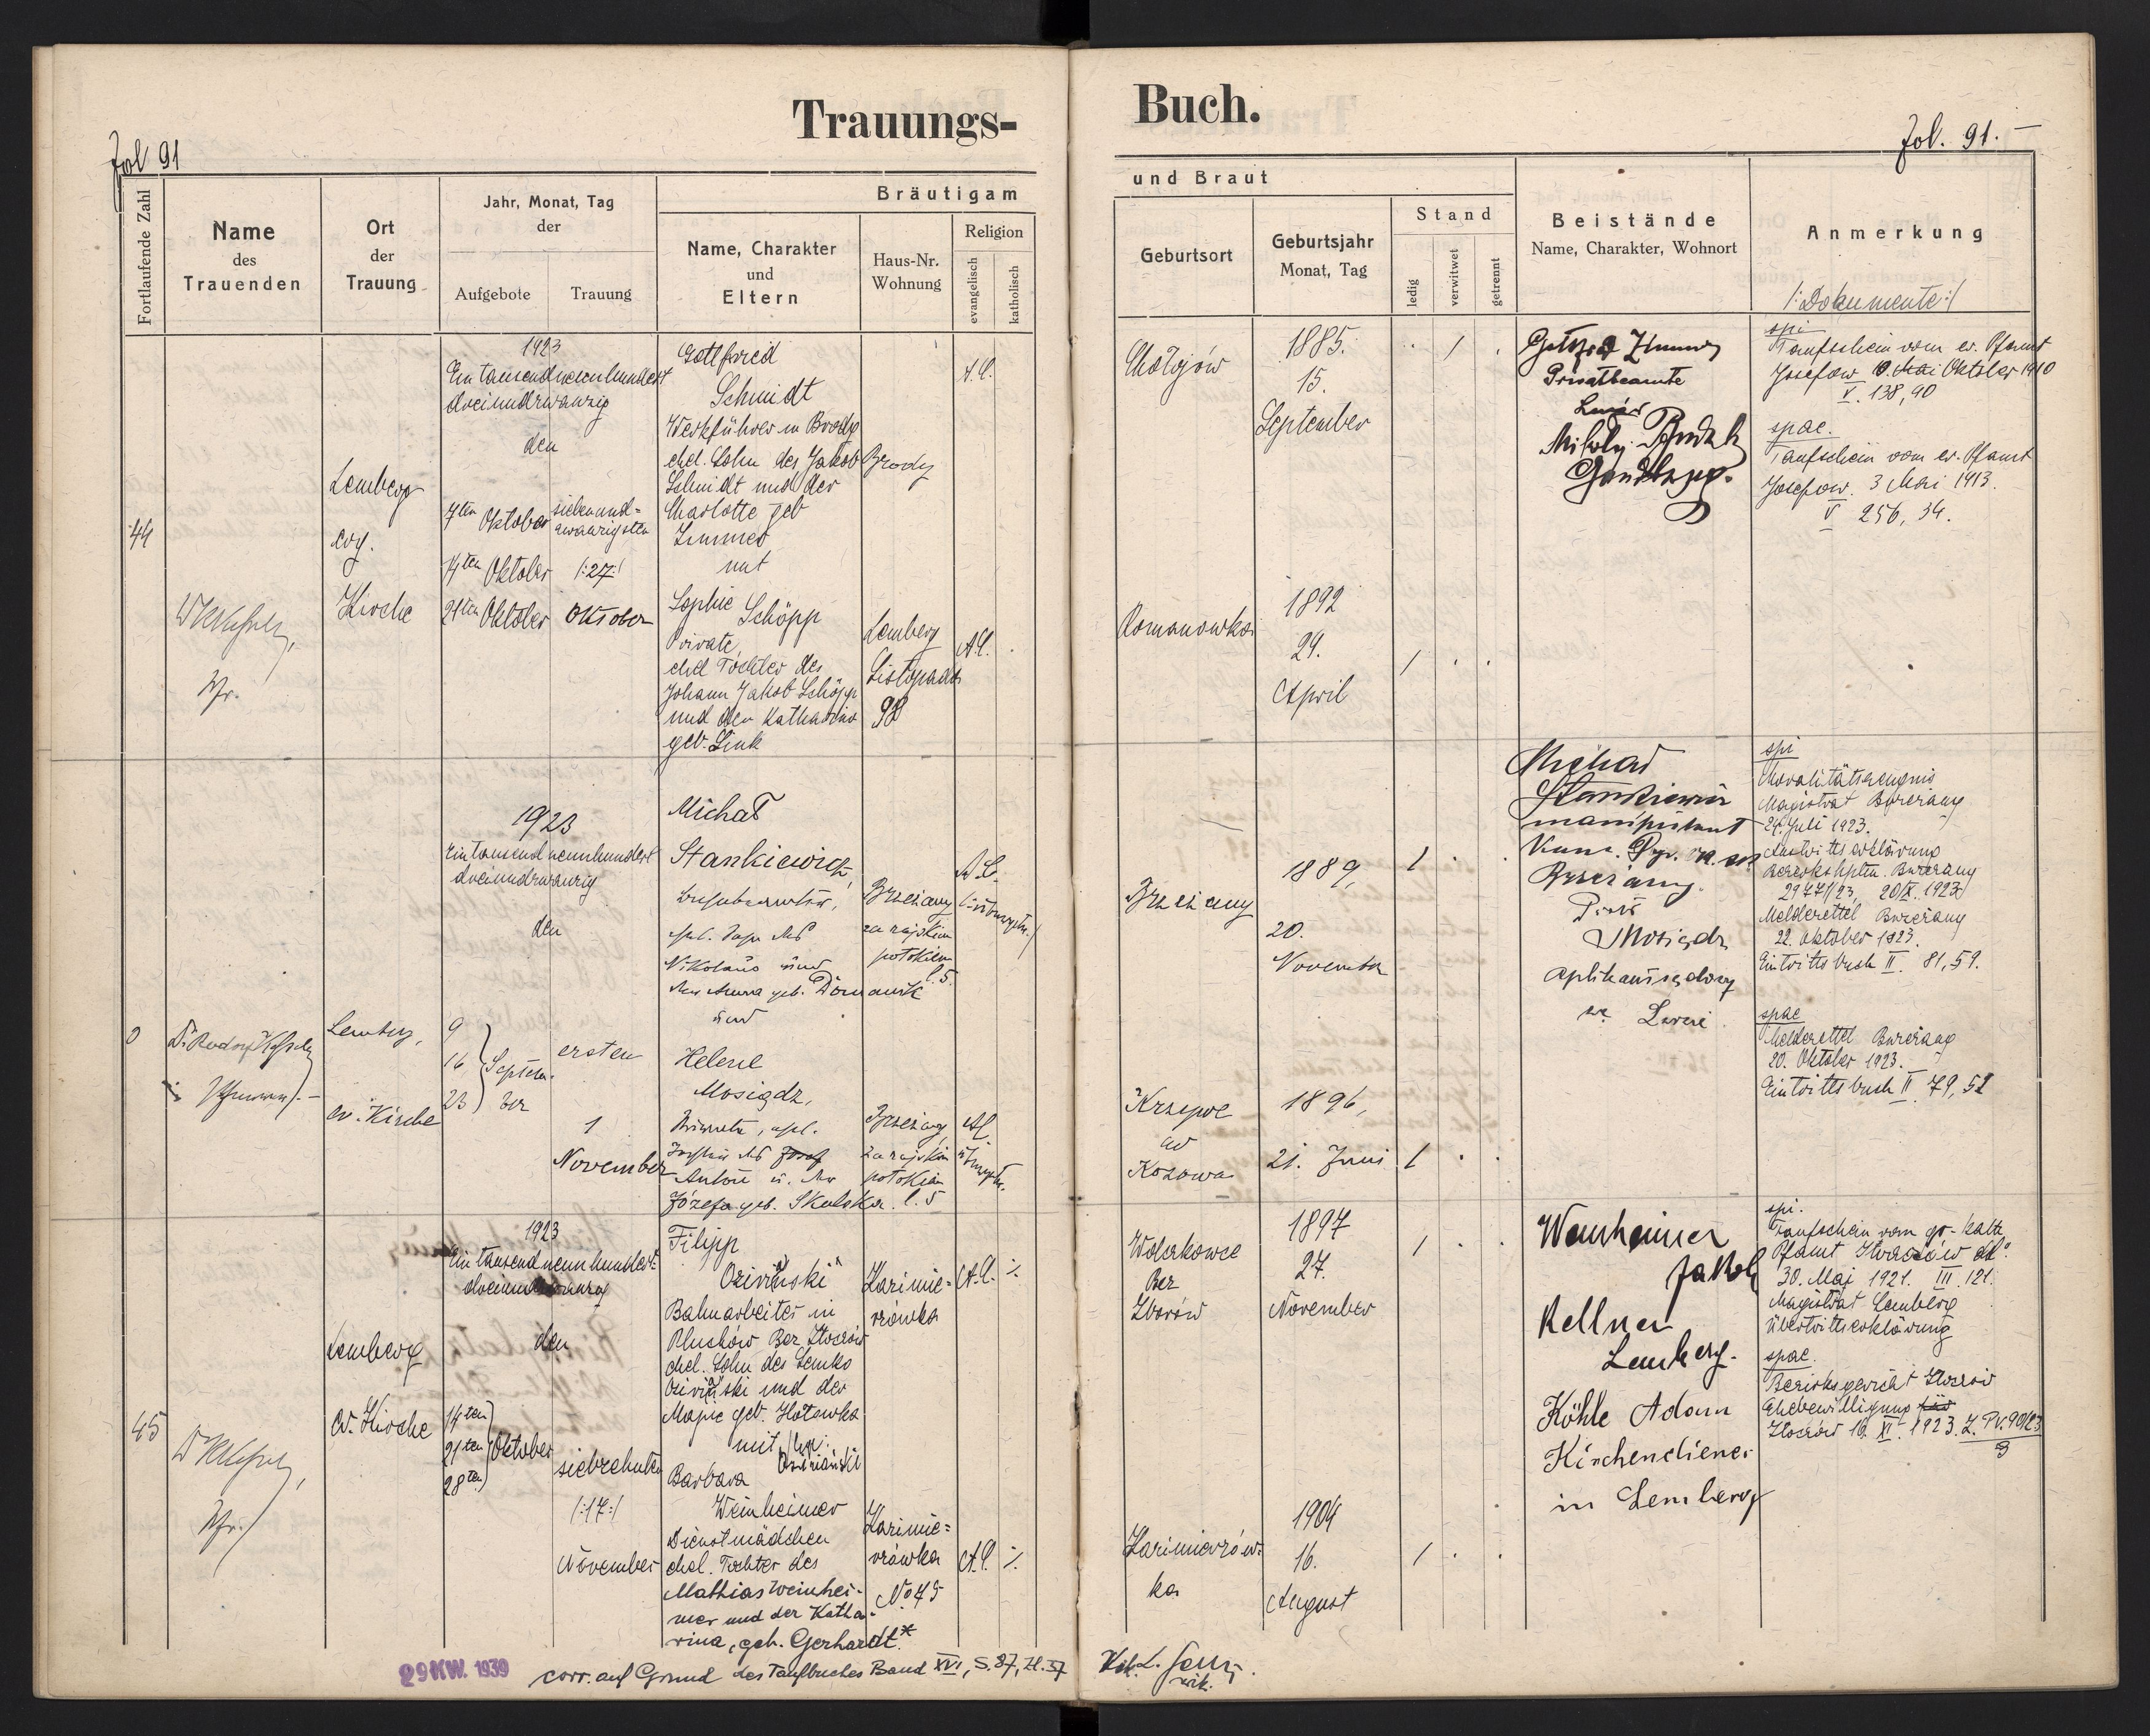 Trauungs-
Buch.
Fol 91
Fol. 91.
Fortlaufende Zahl
Name
des
Trauenden
Ort
der
Trauung
Jahr, Monat, Tag
der
Aufgebote
Trauung
Bräutigam
Name, Charakter
und
Eltern
Haus-Nr.
Wohnung
Religion
evangelisch
katholisch
und Braut
Geburtsort
Geburtsjahr
Monat, Tag
Stand
ledig
verwitwet
getrennt
Beistände
Name, Charakter, Wohnort
Anmerkung
/:Dokumente:/
44
Pfr.
Lemberg
evg.
Kirche
1923
Ein tausendneunhundert
dreiundzwanzig
den
7ten Oktober
14ten Oktober
21ten Oktober
siebenund=
zwanzigsten
/:27:/
Oktober
Gottfried
Schmidt
Werkführer in Brody
ehel. Sohn des Jakob
Schmidt und der
Charlotte geb
Zimmer
mit
Sophie
Schöpp
Private,
ehel Tochter des
Johann Jakob Schöpp
und der Katharina
geb. Link
Brody
Lemberg
Listopada
98
A.C.
A.C.
Chołgów
1885.
15.
September
Romanowka
1892
29.
April
Privatbeamte
spi
Taufschein vom ev. Pfamt
Josefow 10. Mai Oktober 1910
V. 138, 90
spae.
Taufschein vom ev. Pfamt
Josefow. 3 Mai 1913.
V 256, 34.
0
Lemberg,
ev. Kirche
1923
Eintausend neunhundert
dreiundzwanzig
den
9
16
23
Septem.
ber
ersten
1
November
Michał
Stankiewicz,
Nikolaus und
der Anna geb. Domanik
und
Helene
Mosiądz,
Private, ehel.
Tochter des Josef
Antoni u. der
Józefa geb. Skulska.
Brzeżany
za rajskim
potokiem
l. 5.
Brzeżany
za rajskim
potokiem
l. 5
A.C.
AC
Brzeżany
1889,
20.
November
Kozowa
1896,
21. Juni
Michał
Stankiewicz
manipulant
Brzeżany.
Piotr
Mosiądz
aplikant sądowy
we Lwowie
spi
Moralitätszeugnis
Magistrat Brzeżany
24. Juli 1923.
Austrittserklärung
Bezirkshptm. Brzeżany
29771/23, 20/IX. 1923
Meldezettel Brzeżany
22. Oktober 1923.
Eintrittsbuch II. 81, 59.
spae
Meldezettel Brzeżany
20. Oktober 1923.
Eintrittsbuch II 79, 52
45
Pfr.
Lemberg
ev. Kirche
1923
Ein tausend neunhundert
den
14ten
21ten
28ten
Oktober
siebzehnten
/:17:/
November
Filipp
Bahnarbeiter in
Pluchów Bez. Złoczów
ehel. Sohn des Semko
und der
Marie geb. Hotowka
mit
Barbara
Weinheimer
Dienstmädchen
ehel. Tochter des
Mathias Weinhei-
mer und der Katha-
rina, geb. Gerhardt.*
Kazimie=
rówka
Kazimie=
rówka
No 45
A.C.
A.C.
Bez
Zborów
1897
27.
November
Kazimierów=
ka
1904
16.
August
Weinheimer
Jakob
Kellner
Lemberg.
Köhle Adam
Kirchendiener
in Lemberg
spi.
Taufschein vom gr-kath
Pfamt Złoczów dto
30. Maj 1921. III. 121.
Magistrat Lemberg
Übertrittserklärung
spae.
Bezirksgericht Złoczów
Ehebewilligung für
Złoczów 16. XI. 1923. Z. P.V. 90/23
3
29 KW. 1939
corr. auf Grund des Taufbuches Band XVI, S. 87, Zl. 37
wik.